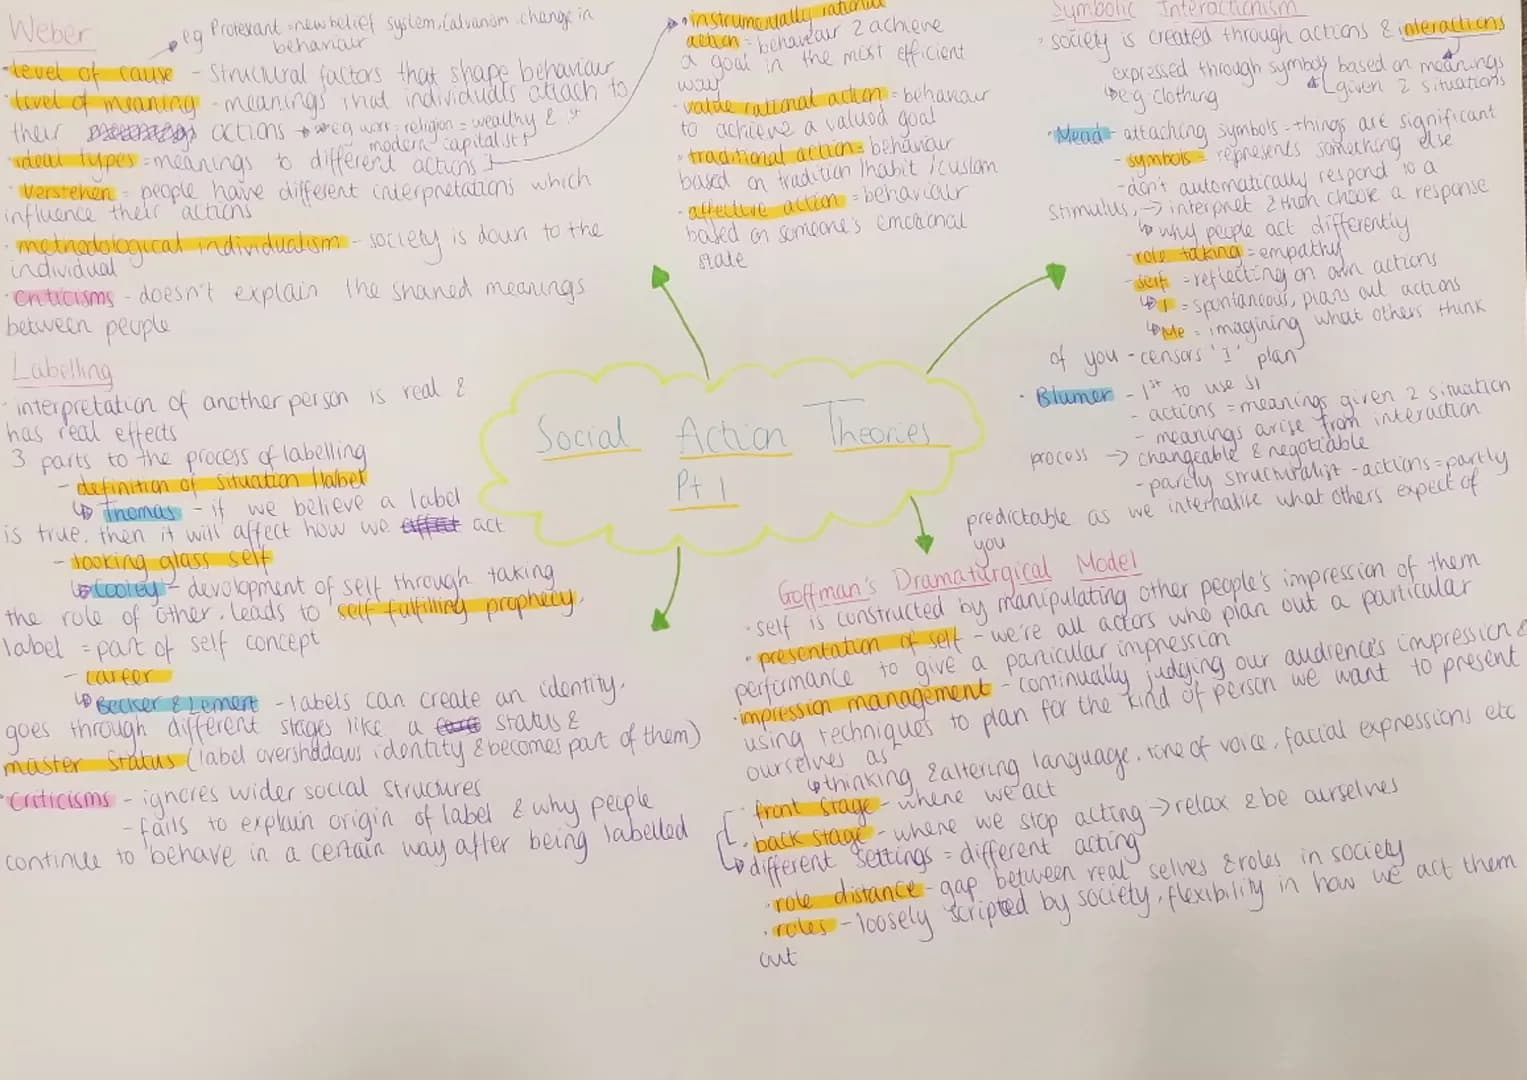 Social Action Theories
Pt 1
Weber
eg Protestant = new belief system, Calvanism, change in
behaviour
· level of cause - structural factors that shape behaviour
· level of meaning - meanings that individuals attach to
their actions → eg work: religion = wealthy & 1st
modern capitalists
· ideal types = meanings to different actions
· verstehen = people have different interpretations which
influence their actions
· methodological individualism - society is down to the
individual
· criticisms - doesn't explain the shared meanings
between people
· instrumentally rational
action = behaviour 2 achieve
a goal in the most efficient
way
· value rational action = behaviour
to achieve a valued goal
· traditional action = behaviour
based on tradition/habit/custom
· affective action = behaviour
based on someone's emotional
state
Symbolic Interactionism
· society is created through actions & interactions
expressed through symbols based on meanings
given 2 situations
↳ eg clothing
· Mead - attaching symbols = things are significant
- symbols = represents something else
- don't automatically respond to a
stimulus, → interpret & then choose a response
↳ why people act differently
- role taking = empathy
- self = reflecting on own actions
↳ I = spontaneous, plans out actions
↳ Me = imagining what others think
of you - censors 'I' plan
· Blumer - 1st to use SI
- actions = meanings given 2 situation
- meanings arise from interaction
process → changeable & negotiable
- partly structuralist - actions = partly
predictable as we internalise what others expect of
you
Labelling
· interpretation of another person is real &
has real effects
3 parts to the process of labelling
- definition of situation/label
↳ Thomas - if we believe a label
is true, then it will affect how we act
- looking glass self
↳ Cooley - devolopment of self through taking
the role of other, leads to self fulfilling prophecy,
label = part of self concept
- career
↳ Becker & Lemert - labels can create an identity,
goes through different stages like a status &
master status (label overshadows identity & becomes part of them)
· criticisms - ignores wider social structures
- fails to explain origin of label & why people
continue to behave in a certain way after being labelled
Goffman's Dramaturgical Model
· self is constructed by manipulating other people's impression of them
· presentation of self - we're all actors who plan out a particular
performance to give a particular impression
· impression management - continually judging our audience's impression &
using techniques to plan for the kind of person we want to present
ourselves as
↳ thinking & altering language, tone of voice, facial expressions etc
· front stage - where we act
· back stage - where we stop acting → relax & be ourselves
↳ different settings = different acting
· role distance - gap between real selves & roles in society
· roles - loosely scripted by society, flexibility in how we act them
out